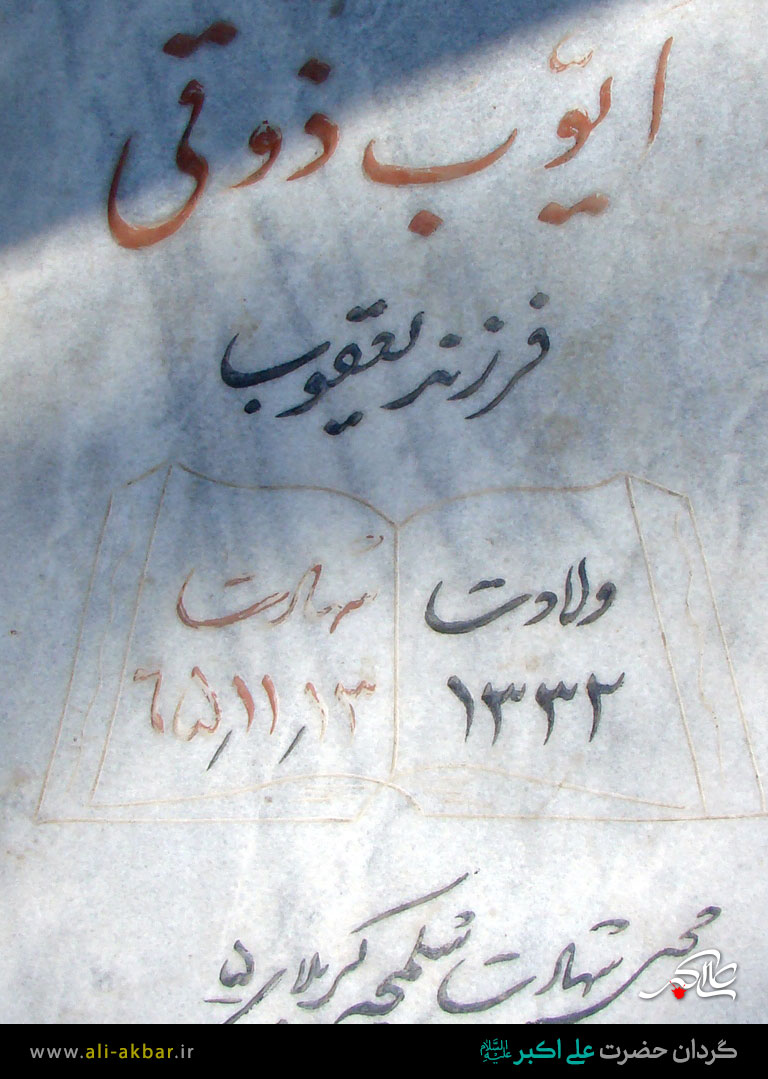 ایّوب ذوقی
فرزند یعقوب
ولادت
۱۳۳۲
شهادت
۶۵٫۱۱٫۱۳
محل شهادت شلمچه کربلای ۵
علی‌اکبر
گردان حضرت علی اکبر علیه‌السلام
www.ali-akbar.ir